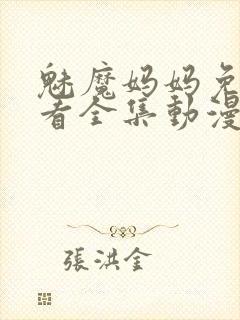 魅魔妈妈免
看全集動漫
張洪金